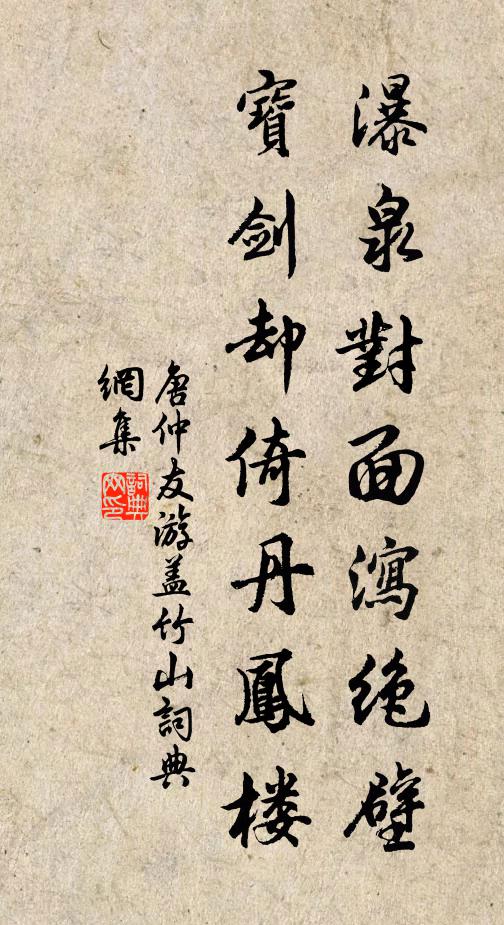 瀑泉對面瀉絶壁
寶劍却倚丹鳳楼
唐仲友游盖竹山詞典
網集
詞典網印